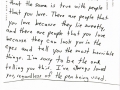 that the same is true with people
that you love. There are people that
you love because they lie sweetly,
and there are people that you love
because they can look you in the
eyes and tell you the most horrible
things. I'm sorry to be the one
telling you this. I've always loved
you, regardless of the pen being used.